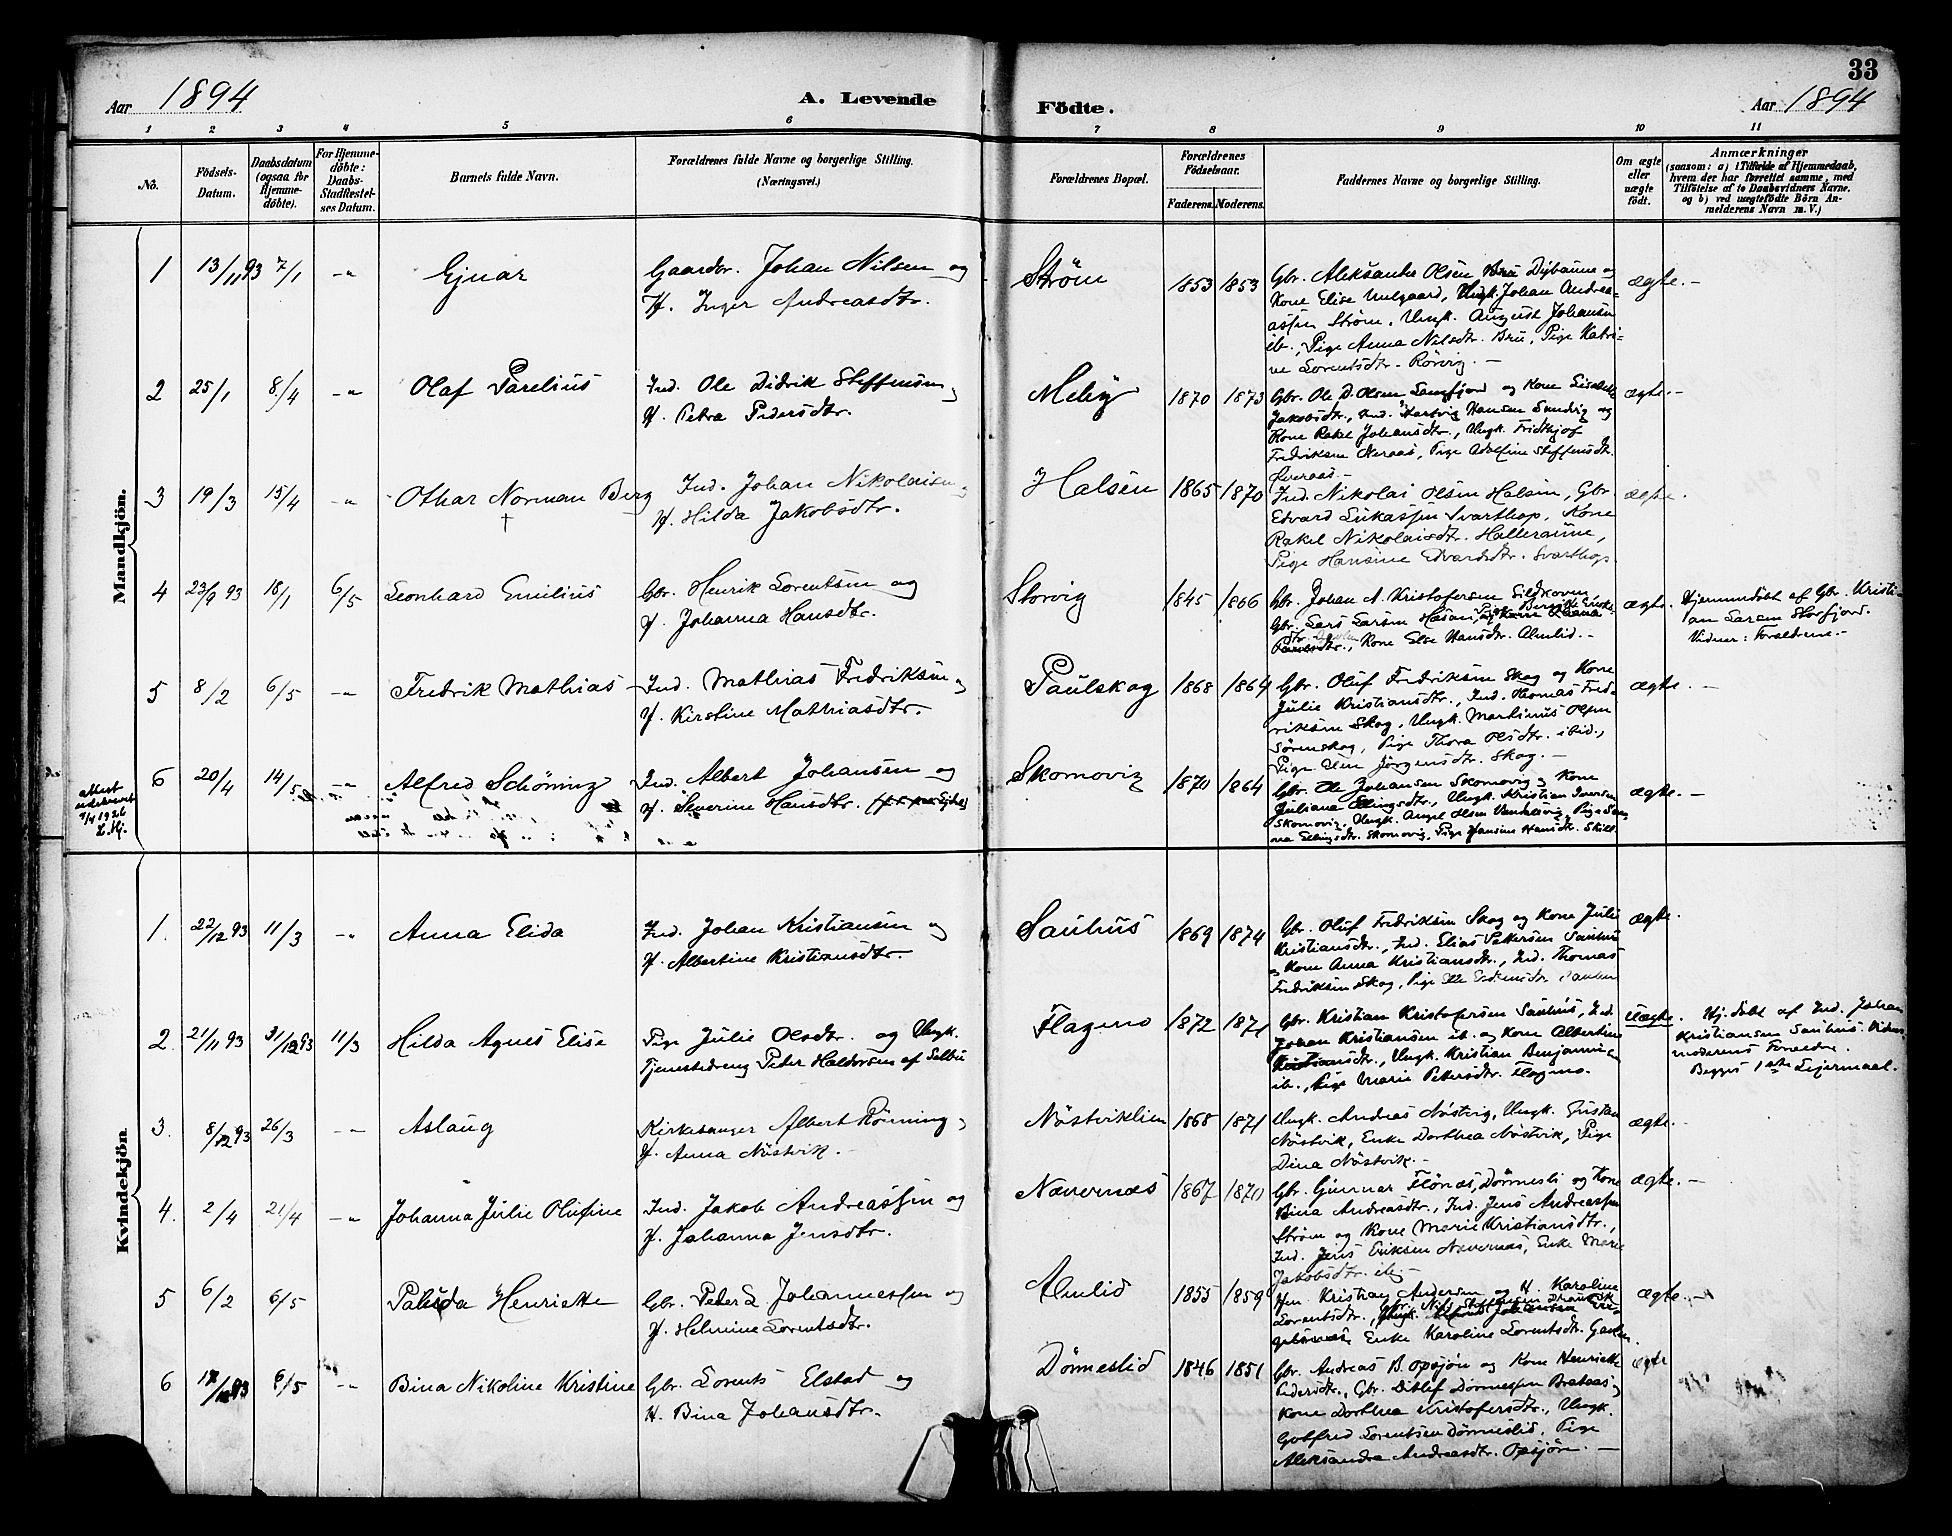 33
Aar 1894
A. Levende
Födte.
Aar 1894
1 2 3 4 5 6 7 8 9 10 11
No.
Födsels-Datum.
Daabsdatum (ogsaa for Hjemme-döbte).
For Hjemme-döbte: Daabs-Stadfæstel-ses Datum.
Barnets fulde Navn.
Forældrenes fulde Navne og borgerlige Stilling.
(Næringsvei.)
Forældrenes Bopæl.
Forældrenes Födselsaar.
Faderens. Moderens.
Faddernes Navne og borgerlige Stilling.
Om ægte eller uægte födt.
Anmærkninger
(saasom: a) i Tilfælde af Hjemmedaab, hvem der har forrettet samme, med Tilföielse af to Daabsvidners Navne, og b) ved uægtefödte Börn An-melderens Navn m. V.)
Mandkjön.
1 13/11 93 7/1 -"- Ejnar
Gaardbr. Johan Nilsen og
H. Inger Andreasdtr.
Ström 1853 1853
Gbr. Aleksander Olsen Dybaune og
Kone Elise, Ungk. Johan Andrea-
assen Ström, Ungk. August Johansen
ib., Pige Anna Nilsdtr. Bru, Pige Katri-
ne Lorentsdtr. Rörvig. -
ægte. -
2 25/1 8/4 -"- Olaf Parelius
Ind. Ole Didrik Steffensen og
H. Petra Pedersdtr.
Meby 1870 1873
Gbr. Ole D. Olsen og Kone Lisabeth
Jakobsdtr., Ind. Hartvig Hansen Sundvig og
Kone Rakel Johansdtr., Ungk. Fridthjof
Fredriksen Neraas, Pige Adolfine Steffensdtr.
Överaas -
ægte. -
3 19/3 15/4 -"- Othar Norman Berg
†
Ind. Johan Nikolaisen og
H. Hilda Jakobsdtr.
Halsen 1865 1870
Ind. Nikolai Olsen Halsen, Gbr.
Edvard Lukassen Svarthop, Kone
Rakel Nikolaisdtr. Halleraune,
Pige Hansine Edvardsdtr. Svarthop.
ægte.
4 23/9 93 18/1 6/5 Leonhard Emilius
Gbr. Henrik Lorentsen og
H. Johanna Hansdtr.
Storvig 1845 1866
Gbr. Johan A. Kristofersen
Gbr. Lars Larsen Hasen,
Kone Else Hansdtr. Almlid. -
ægte.
Hjemmedöbt af Gbr. Kristi-
an Larsen Storfjord.
Vidner: Forældrene. -
5 8/2 6/5 -"- Fredrik Mathias
Ind. Mathias Fredriksen og
H. Kirstine Mathiasdtr.
Paulskog 1868 1864
Gbr. Oluf Fredriksen Skog og Kone
Julie Kristiansdtr., Ind. Thomas Fred-
riksen Skog, Ungk. Martinus Olsen
Sörenskog, Pige Thora Olsdtr. ibid.,
Pige Elen Jörgensdtr. Skog. -
ægte. -
Attest
udskrevet
1926
6 20/4 14/5 -"- Alfred Schöning
Ind. Albert Johansen og
H. Severine Hansdtr.
Skomovig 1870 1864
Gbr. Ole Johansen Skomovig og Kone
Juliana Ellingsdtr., Ungk. Kristian Iversen
Skomovig, Ungk. Angel Olsen, Pige
Ellingsdtr. Skomovig, Pige Hansine Hansdtr.
ægte. -
Kvindekjön
1. 22/12 93 11/3 -"- Anna Elida
Ind. Johan Kristiansen og
H. Albertine Kristiansdtr.
Sauhus 1869 1874
Gbr. Oluf Fredriksen Skog og Kone Julie
Kristiansdtr., Ind. Elias Pettersen Sauhus
og Kone Anna Kristiansdtr., Ind. Thomas
Fredriksen Skog, Pige
ægte.
2. 21/11 93 31/12 93 11/3 Hilda Agnes Elise
Pige Julie Olsdtr. og Ungk.
Tjenestedreng Peder Haldorsen af Selbu
Flagmo 1872 1871
Gbr. Kristian Kristofersen Sauhus, Ind.
Johan Kristiansen ib. og Kone Albertine
Kristiansdtr., Ungk. Kristian Benjaminsen
ib., Pige Marie Pettersdtr. Flagmo.
uægte.
Hj. döbt af Ind. Johan
Kristiansen Sauhus. Vidner:
moderens Forældre.
Begges 1ste Leiermaal.
3. 8/12 93 26/3 -"- Aslaug
Kirkesanger Albert Rönning og
H. Anna Nöstvik. -
Nöstviklien 1868 1871
Ungk. Andreas Nöstvig, Ungk. Kristian
Nöstvik, Enke Dorthea Nöstvik, Pige
Dina Nöstvik. -
ægte. -
4. 2/4 21/4 -"- Johanna Julie Olufine
Ind. Jakob Andreassen og
H. Johanna Jensdtr.
Navernæs 1867 1870
Gbr. Gunnar Flönæs, Dönneslid og Kone
Bina Andreasdtr., Ind. Jens Andreassen
Ström og Kone Marie Kristiansdtr.,
Ind. Jens Eriksen Navernæs, Enke Marie
Jakobsdtr. ib. -
ægte. -
5 6/2 6/5 Palisda Henriette
Gbr. Peder L. Johannessen og
H. Helmine Lorentsdtr.
Almlid 1855 1859
Kristian Andersen og H. Karoline
Lorentsdtr.,
Enke Karoline Lorentsdtr.
ægte. -
6 17/12 93 6/5 -"- Bina Nikoline Kristine
Gbr. Lorents Elstad og
H. Bina Johansdtr.
Dönneslid 1846 1851
Gbr. Andreas B. Opsjön og Kone Henriette
Pedersdtr., Gbr. Ditlef Dönnessen og
Kone Dorthea Kristofersdtr., Ungk.
Gotfred Lorentsen Dönneslid, Pige
Aleksandra Andreasdtr. Opsjön. -
ægte